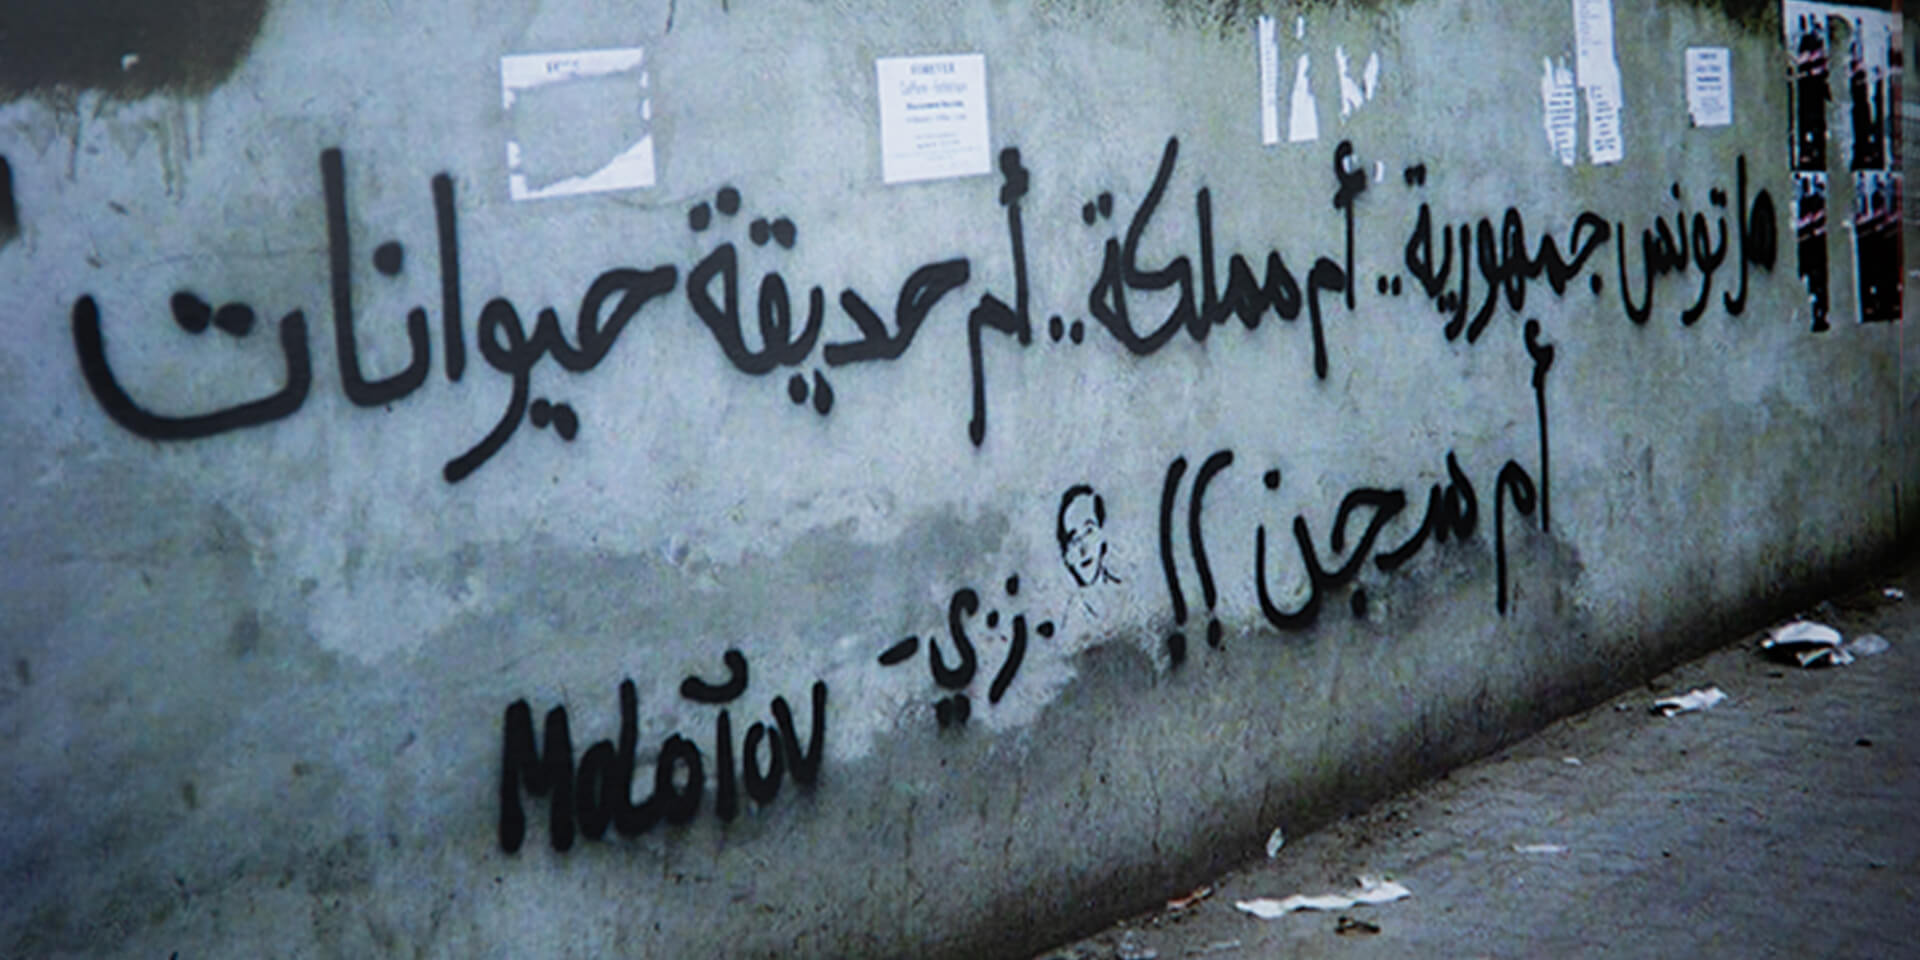 هل تونس جمهورية.. أم مملكة.. أم حديقة حيوانات
أم سجن !!
زي -
MOLOTOV
FOREVER